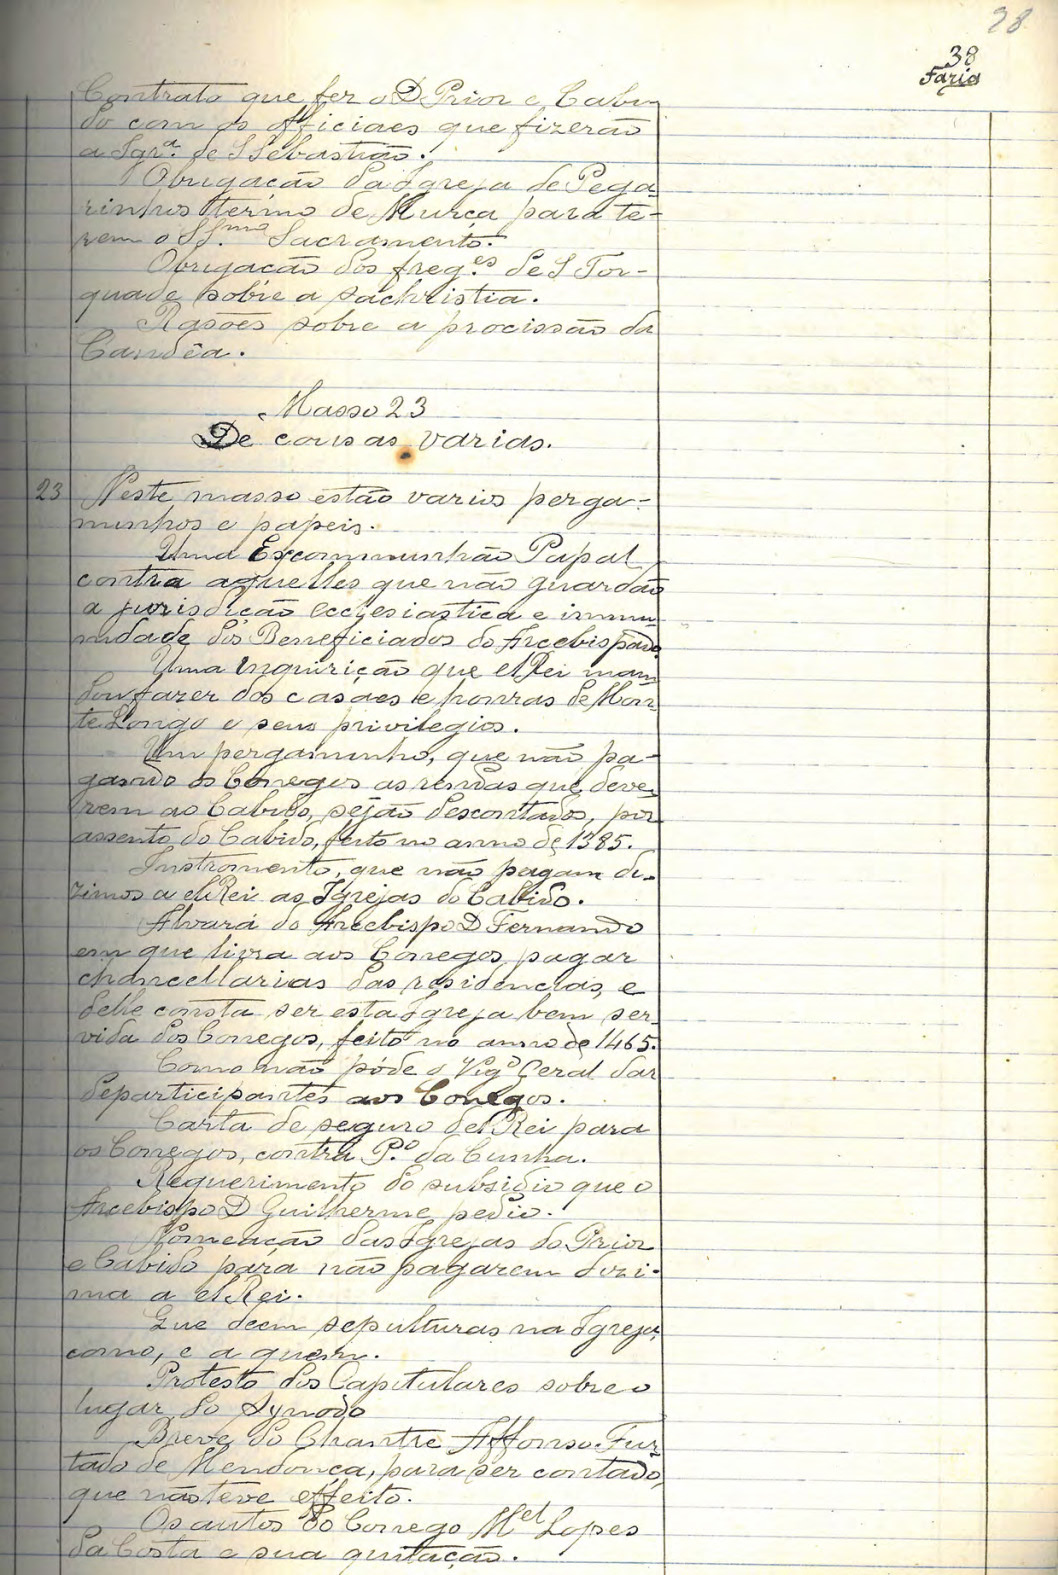 28
38
Faria
Contrato que fez o D Prior e Cabi
do com os officiaes que fizerão
a Igrª. de S Sebastião.
Obrigação da Igreja de Pega-
rinhos termo de Murça para te-
rem o SSmo Sacramento.
Obrigação dos freg.es de S Tor-
quade sobre a sachristia.
Rasões sobre a procissão da
Candêa.
Masso 23
De cousas varias.
23 Neste masso estão varios perga-
minhos e papeis.
Uma Excommunhão Papal
contra aquelles que não guardão
a jurisdição ecclesiastica e immu
nidade dos Beneficiados do Arcebispado
Uma inquirição que el Rei man
dou fazer dos casaes e honras de Mon
te Longo e seus privilegios.
Um pergaminho, que não pa-
gando os Conegos as rendas que deve
rem ao Cabido, sejão descontados, por
assento do Cabido, feito no anno de 1385.
Instromento, que não pagam di-
zimos a el Rei as Igrejas do Cabido.
Alvará do Arcebispo D Fernando
em que livra aos Conegos pagar
chancellarias das residencias, e
delle consta ser esta Igreja bem ser-
vida dos Conegos, feito no anno de 1465.
Como não póde o Vigº Geral dar
departicipantes aos Conegos.
Carta de seguro del Rei para
os Conegos, contra P.º da Cunha.
Requerimento do subsidio que o
Arcebispo D Guilherme pedio.
Nomeação das Igrejas do Prior
e Cabido para não pagarem dizi-
ma a el Rei.
Que deem sepulturas na Igreja,
como, e a quem.
Protesto dos Capitulares sobre o
lugar do Synodo
Breve do Chantre Affonso Fur
tado de Mendonça, para ser contado,
que não teve effeito.
Os autos do Conego Mel Lopes
da Costa e sua quitação.